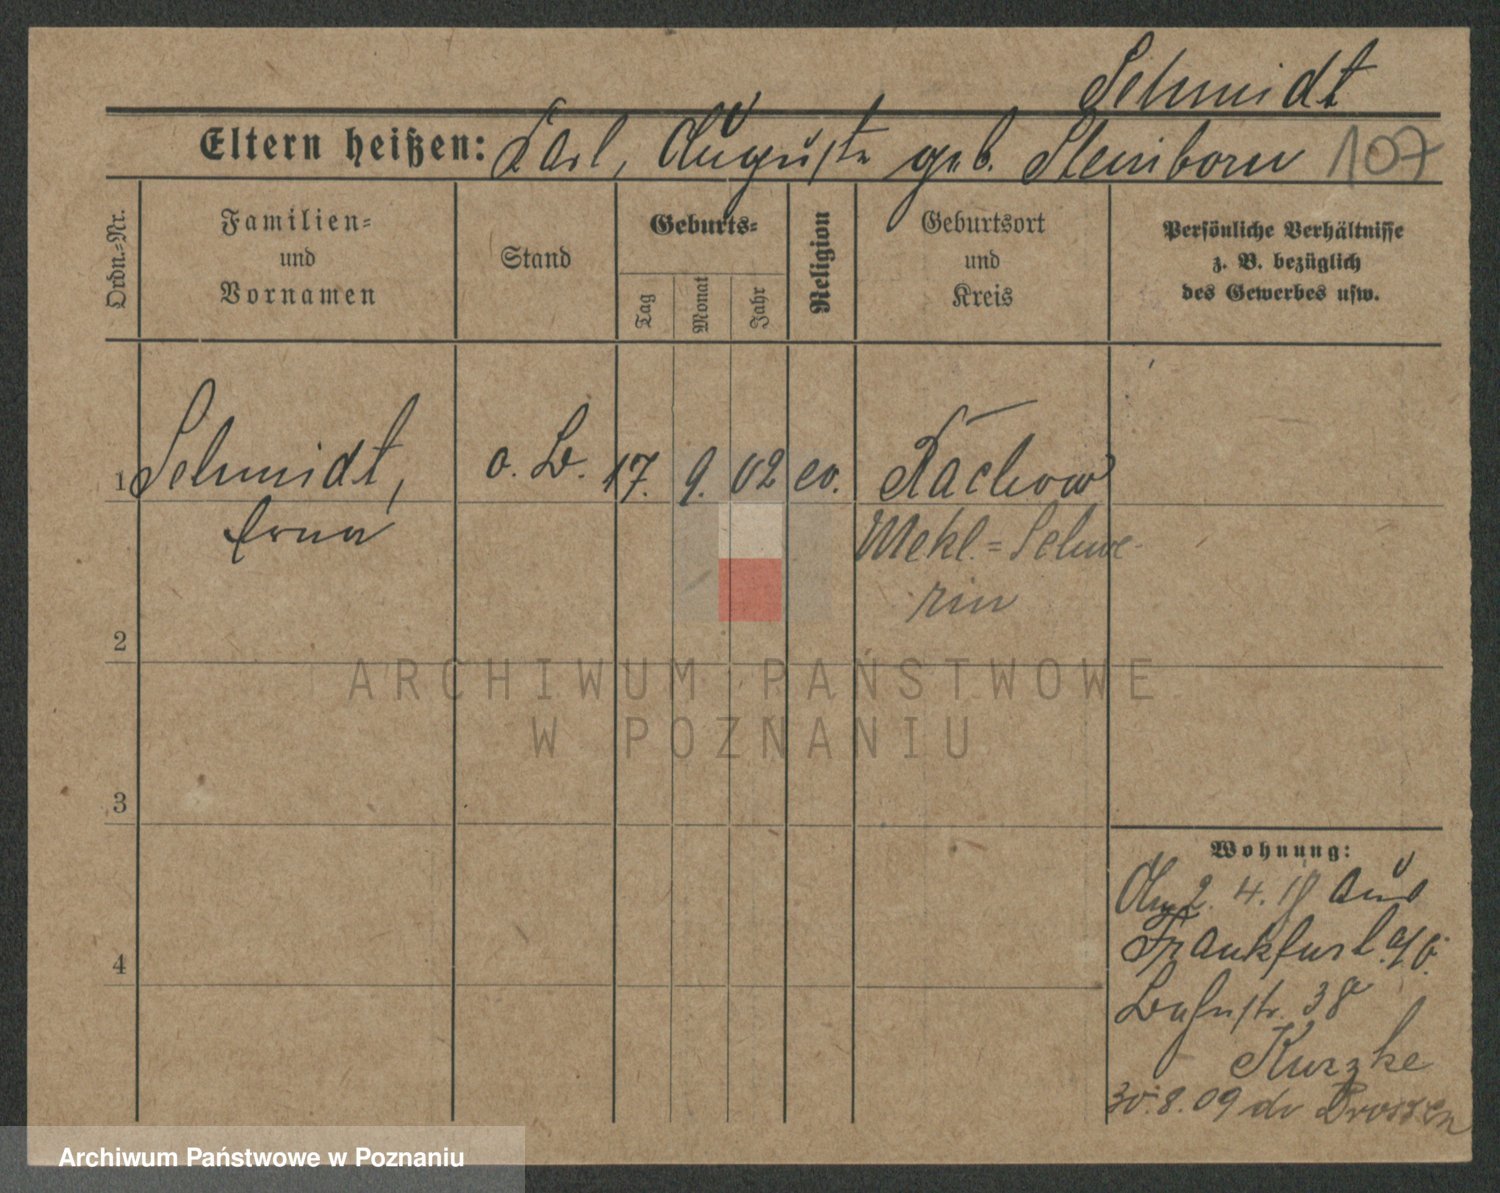 Schmidt
Eltern heißen: Karl, Auguste geb. Steinborn 107
Ordn.=Nr.
Familien=
und
Vornamen
Stand
Geburts=
Tag
Monat
Jahr
Religion
Geburtsort
und
Kreis
Persönliche Verhältnisse
z. B. bezüglich
des Gewerbes usw.
1 Schmidt, o. B. 17. 9. 02 ev. Rachow
Erna Mekl.=Schwe-
rin
2
ARCHIWUM PAŃSTWOWE
W POZNANIU
3
Wohnung:
2. 4. aus
4 Frankfurt a/O.
Bahnstr. 38
Kurzke
30.8.09 Drossen
Archiwum Państwowe w Poznaniu